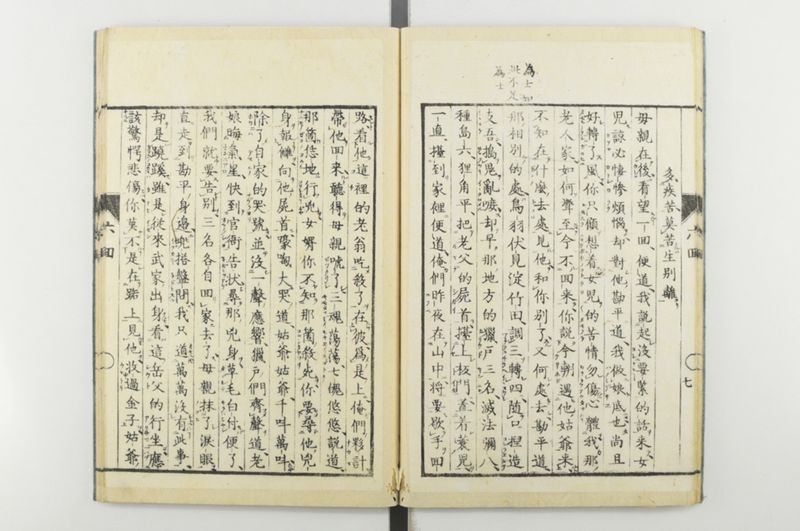 為士如
此不足
為士
多疾苦莫苦生別離
母親在後看望一回便道我說起沒要緊的話來女
兒諒必悽慘煩惱却對他勘平道我做娘底也尚且
好轉了風你只懶想着女兒的苦情勿傷心體我那
老人家如何弊至今不回來你說今朔遇他姑爺來
不知在什麼去處見他和你別了又何處去勘平道
那相別的處鳥羽伏見淀竹田調三轉四隨口捏造
支吾搗鬼亂嗾却早那地方的獵戶三名滅法彌八
種島六狸角平把老父的屍首擡上板門蓋着簑兒
一直擡到家裡便道俺們昨夜在山中将要歇手回
六回
七
路看他這裡的老翁吃殺了在彼為是上俺們夥計
帶他回來聽得母親唬了三魂蕩蕩七魄悠悠說道
那箇恁地行兇女婿你不知那箇殺死你要尋他兇
身報讎向他屍首嚎啕大哭道姑爺姑爺千呌萬呌
除了自家的哭號並沒一聲應響獵戶們齊聲道老
娘晦氣星快到官衙告狀尋那兇身草毛白付便了
我們就要告別三名各自回家去了母親抹了淚眼
直走到勘平身邊兜搭盤問我只道萬萬沒有此事
却是蹺蹊雖是從來武家出身看這岳父的行坐應
該驚愕悲傷你莫不是在路上見他收過金子姑爺
六回